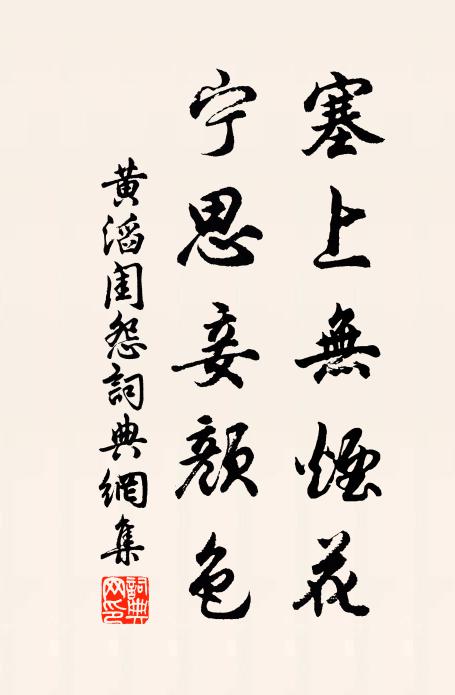 塞上無煙花
宁思妾顏色
黄滔閨怨詞典網集
詞典网印